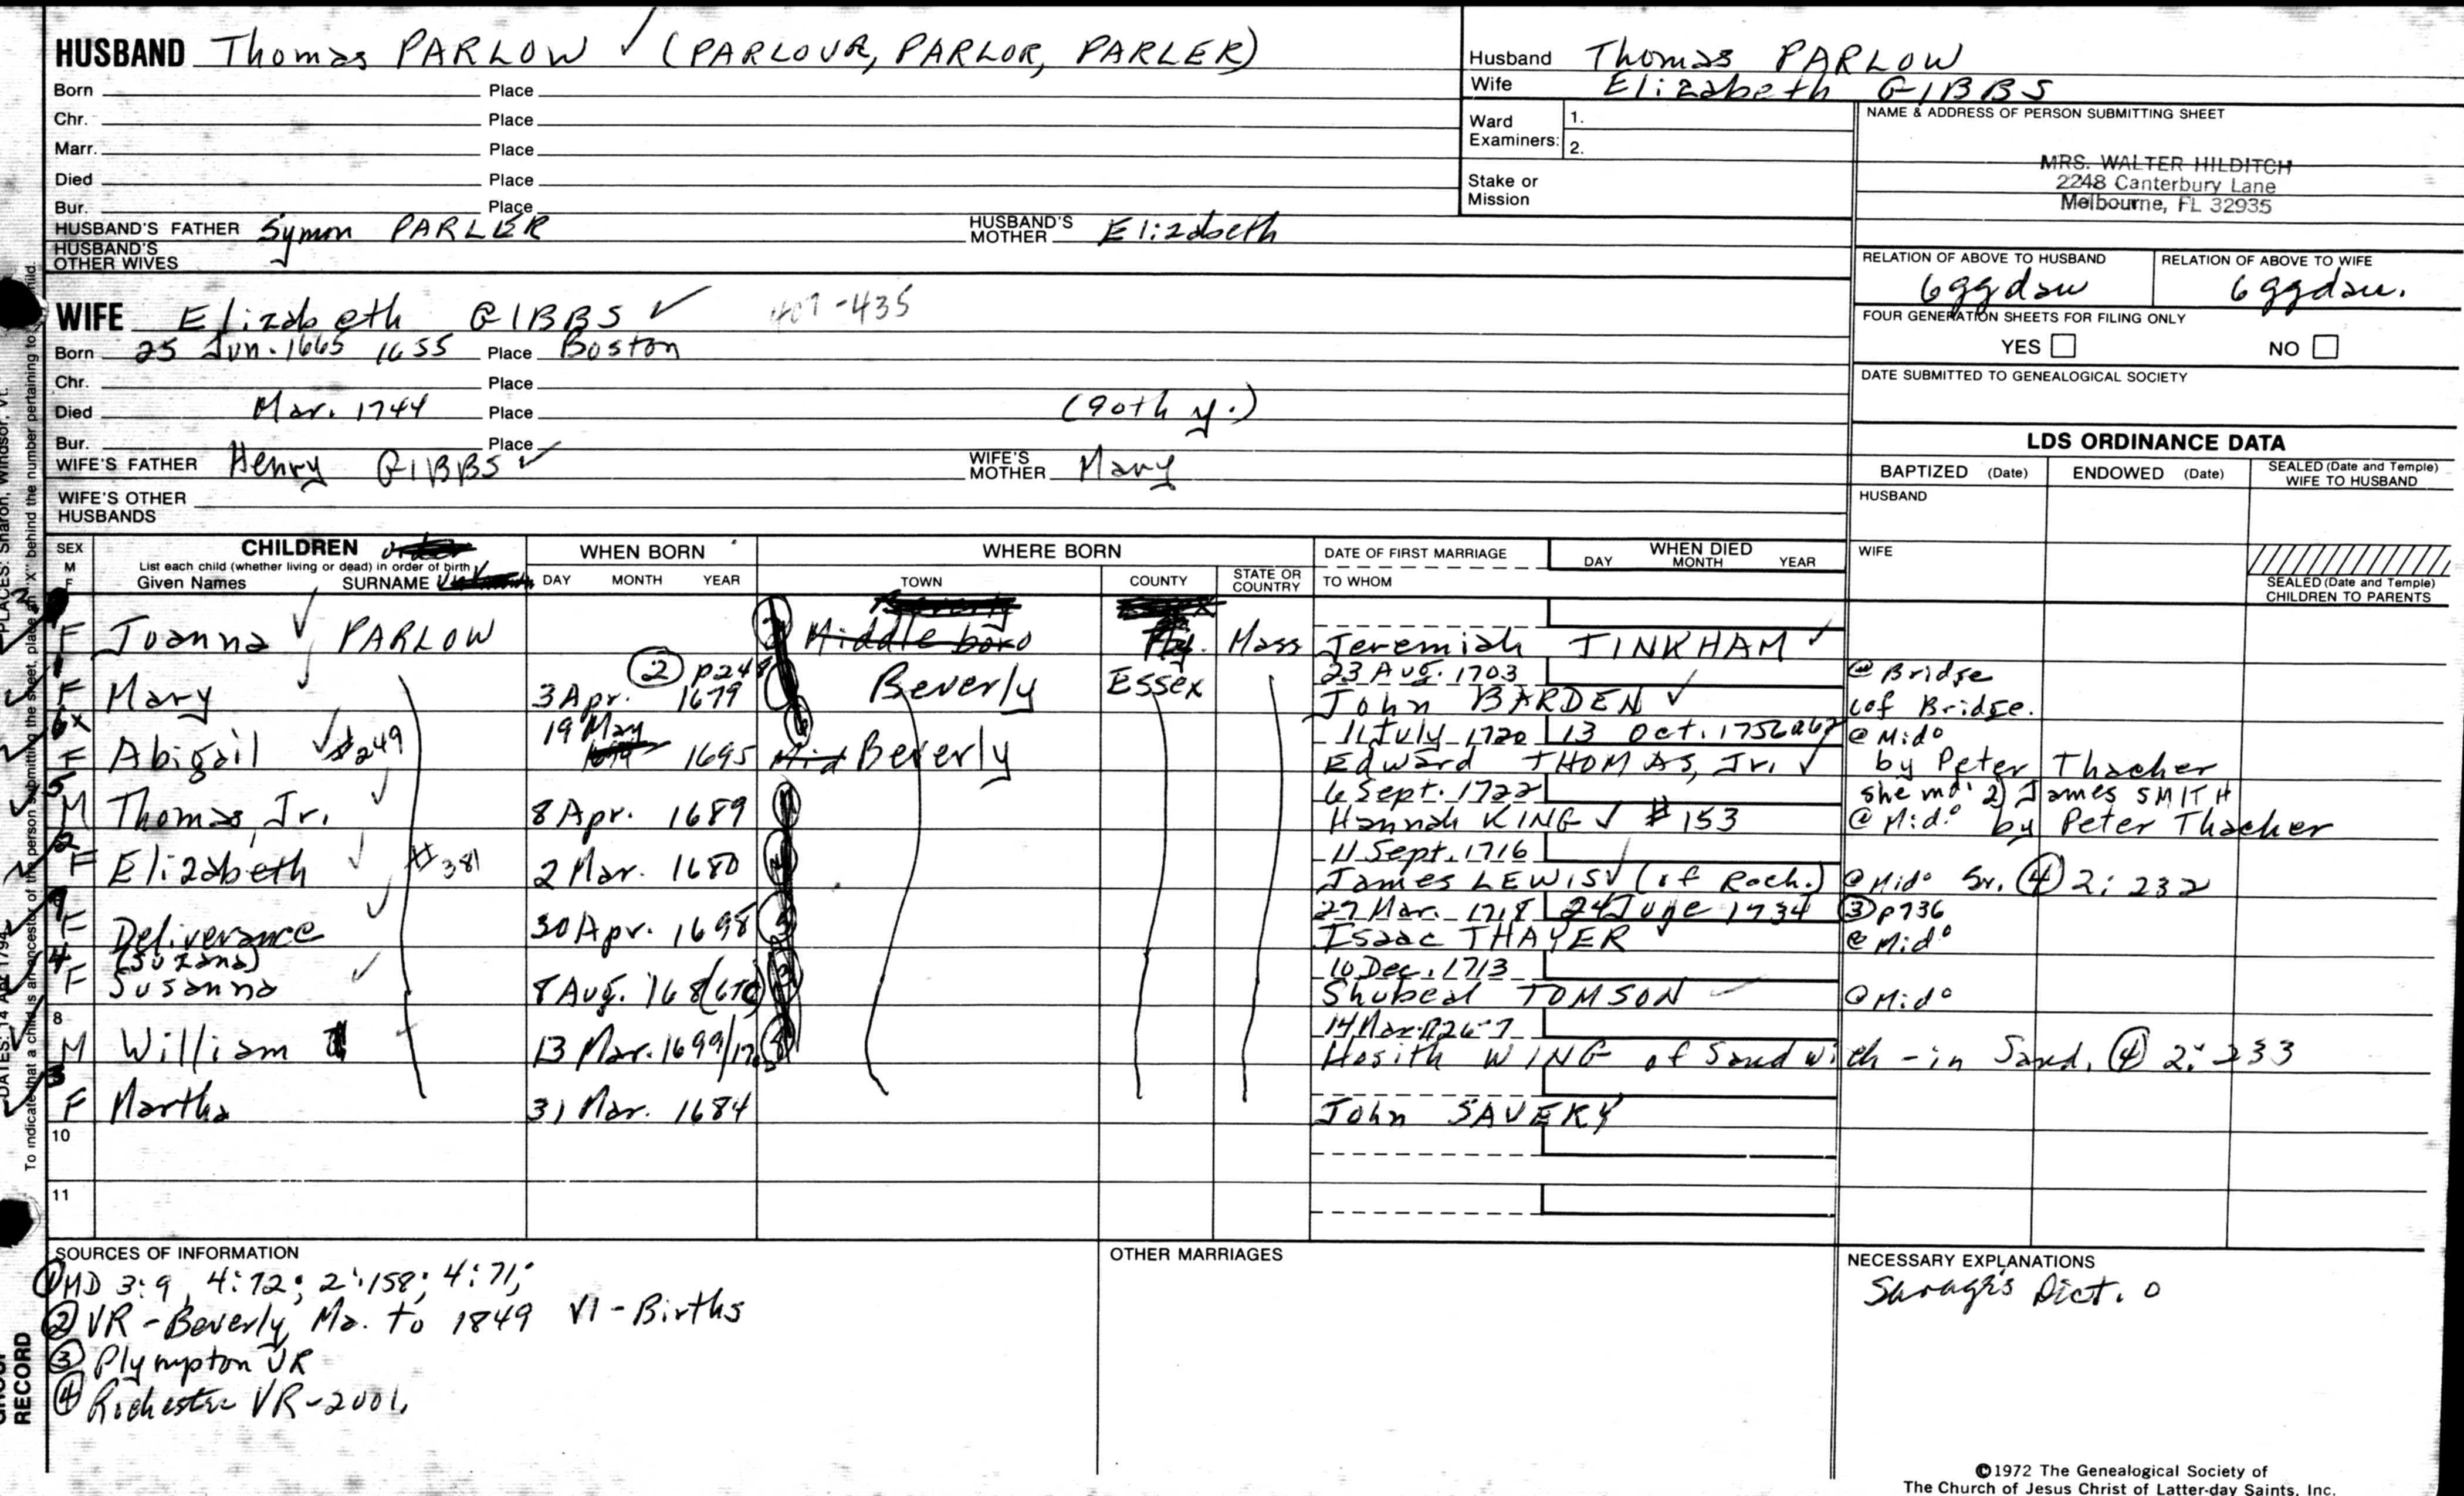 HUSBAND Thomas PARLOW ✓ (PARLOUR, PARLOR, PARLER)
Born Place
Chr. Place
Marr. Place
Died Place
Bur. Place
HUSBAND'S FATHER Symon PARLER HUSBAND'S MOTHER Elizabeth
HUSBAND'S OTHER WIVES
Husband Thomas PARLOW
Wife Elizabeth GIBBS
Ward Examiners: 1.
2.
Stake or Mission
NAME & ADDRESS OF PERSON SUBMITTING SHEET
MRS. WALTER HILDITCH
2248 Canterbury Lane
Melbourne, FL 32935
RELATION OF ABOVE TO HUSBAND RELATION OF ABOVE TO WIFE
6ggdau 6ggdau.
FOUR GENERATION SHEETS FOR FILING ONLY
YES NO
DATE SUBMITTED TO GENEALOGICAL SOCIETY
WIFE Elizabeth GIBBS ✓ 407-435
Born 25 Jun. 1665 1655 Place Boston
Chr. Place
Died Mar. 1744 Place (90th y.)
Bur. Place
WIFE'S FATHER Henry GIBBS ✓ WIFE'S MOTHER Mary
WIFE'S OTHER HUSBANDS
LDS ORDINANCE DATA
BAPTIZED (Date) ENDOWED (Date) SEALED (Date and Temple) WIFE TO HUSBAND
HUSBAND
WIFE
SEALED (Date and Temple) CHILDREN TO PARENTS
SEX M F
CHILDREN
List each child (whether living or dead) in order of birth
Given Names SURNAME
WHEN BORN
DAY MONTH YEAR
WHERE BORN
TOWN COUNTY STATE OR COUNTRY
DATE OF FIRST MARRIAGE
TO WHOM
WHEN DIED
DAY MONTH YEAR
F Joanna ✓ PARLOW Middleboro Ply. Mass Jeremiah TINKHAM ✓
1 ② p248 23 Aug. 1703 @ Bridge
F Mary 3 Apr. 1679 Beverly Essex John BARDEN ✓ of Bridge.
6x 19 May 11 July 1720 13 Oct. 1756 @ Mido
F Abigail ✓ #249 1695 Mid Beverly Edward THOMAS, Jr. ✓ by Peter Thacher
5 6 Sept. 1722 she md. 2) James SMITH
M Thomas, Jr. 8 Apr. 1689 Hannah KING ✓ #153 @ Mido by Peter Thacher
2 11 Sept. 1716
F Elizabeth ✓ #381 2 Mar. 1680 James LEWIS ✓ (of Roch.) @ Mido Sr. ④ 2:232
27 Mar. 1718 24 June 1734 ③ p736
F Deliverance 30 Apr. 1698 Isaac THAYER @ Mido
4 (Suzana) 10 Dec. 1713
F Susanna 8 Aug. Shubeal TOMSON @ Mido
8 14 Mar. 1726-7
M William 13 Mar. 1699/ WING of Sandwith - in Sand. ④ 2:233
3
F Martha 31 Mar. 1684 John SAVERY
10
11
SOURCES OF INFORMATION
① MD 3:9, 4:72; 2:158; 4:71;
② VR - Beverly, Ma. to 1849 V1 - Births
③ Plympton VR
④ Rochester VR - 2001.
OTHER MARRIAGES
NECESSARY EXPLANATIONS
Dict.
To indicate that a child is an ancestor of the person submitting the sheet, place an "X" behind the number pertaining to child.
RECORD
©1972 The Genealogical Society of
The Church of Jesus Christ of Latter-day Saints, Inc.